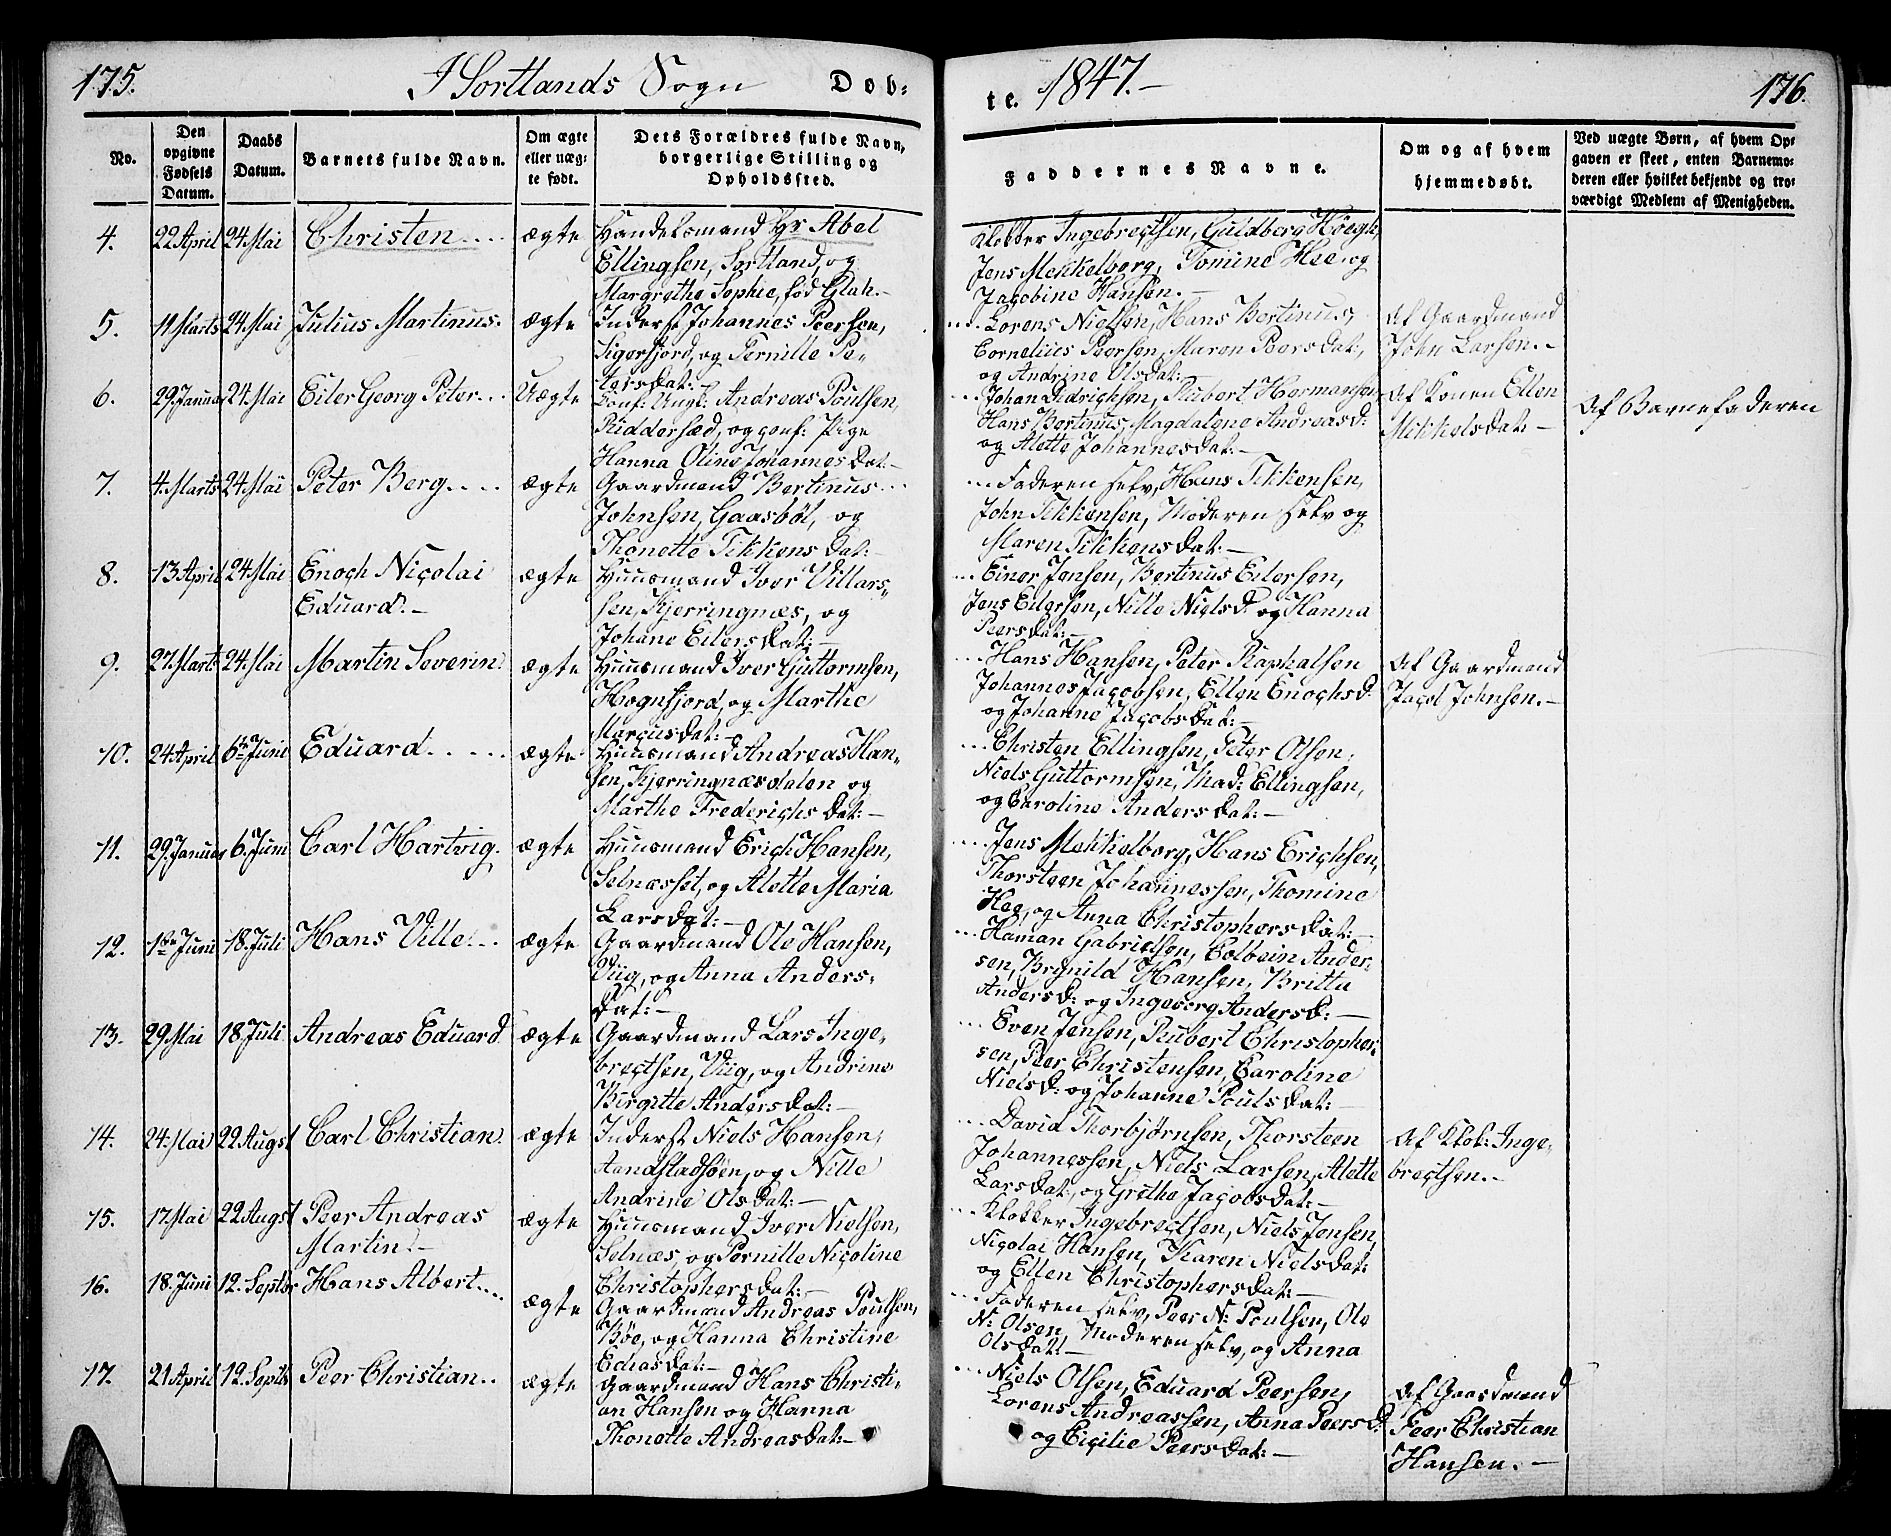 175.
I Sortlands Sogn
Dob:
te. 1847.-
176.
No.
Den opgivne Fødsels Datum.
Daabs Datum.
Barnets fulde Navn.
Om ægte eller uæg: te født.
Dets Forældres fulde Navn, borgerlige Stilling og Opholdssted.
Faddernes Navne.
Om og af hvem hjemmedøbt.
Ved uægte Børn, af hvem Op:
gaven er skeet, enten Barnemo:
deren eller hvilket bekjendt og tro:
værdigt Medlem af Menigheden.
4. 22 April 24 Mai Christen.... ægte Handelsmand Hr Abel
Ellingsen, Sortland, og
Margrethe Sophie, fød Glah.-
Klokker Ingebregtsen, Guldberg Höegh,
Jens Mekkelborg, Tomine Hee og
Jacobine Hansen.-
5. 11 Marts 24 Mai Julius Martinus. ægte Inderst Johannes Peersen,
Sigerfjord, og Pernille Pe-
tersDat:
Lorens Nielsen, Hans Bertinus,
Cornelius Peersen, Maren PeersDat,
og Andrine OlsDat:
Af Gaardmand
John Larsen.-
6. 29 Januar 24 Mai Eiler Georg Peter... Uægte Conf: Ungk: Andreas Poulsen
Riddersæd, og conf: Pige
Hanna Oline JohannesDat:-
Johan Didrichsen, Rubert Hermansen
Hans Bertinus, Magdalene AndreasD:
og Alette JohannesDat:-
Af Konen Ellen
MikkelsDat:-
Af Barnefaderen
7. 4. Marts 24 Mai Peter Berg.... ægte Gaardmand Bertinus...
Johnsen, Gaasbøl, og
Thonette TikkensDat:-
... Faderen selv, Hans Tikkensen,
John Tikkensen, Moderen selv og
Maren TikkensDat:-
8. 13 April 24 Mai Enoch Nicolai
Eduard.-
ægte Huusmand Iver Villars-
sen, Kjerringnæs, og
Johane EilersDat:-
Einer Jensen, Bertinus Eilersen,
Jens Eilersen, Nille NielsD: og Hanna
PeersDat:-
9. 27. Marts 24. Mai Martin Severin. ægte Huusmand Iver Guttormsen,
Hognfjord, og Marthe
MarcusDat:-
Hans Hansen, Peter Raphalsen
Johannes Jacobsen, Ellen EnochsD:
og Johanne JacobsDat:-
Af Gaardmand
Jacob Johnsen.-
10. 24 April 6te Juni Eduard..... ægte Huusmand Andreas Han-
sen, Kjerringnæsdalen og
Marthe FrederichsDat:-
Christen Ellingsen, Peter Olsen,
Niels Guttormsen, Mad: Ellingsen,
og Caroline AndersDat:-
11. 29. Januar 6. Juni Carl Hartvig. ægte Huusmand Erich Hansen,
Selnæsset, og Alette Maria
LarsDat:-
Jens Mekkelborg, Hans Erichsen,
Thorsteen Johannessen, Thomine
Hee, og Anna ChristophersDat:-
12. 1te Juni 18. Juli Hans Ville... ægte Gaardmand Ole Hansen,
Viig, og Anna Anders-
Dat:-
Haman Gabrielsen, Colbein Ander:
sen, Brynild Hansen, Britta
AndersD: og Ingeberg AndersD:-
13. 29 Mai 18. Juli Andreas Eduard ægte Gaardmand Lars Inge-
bregtsen, Viig, og Andrine
Birgitte AndersDat:-
Even Jensen, Rubert Christopher:
sen, Peer Christensen, Caroline
NielsD: og Johanne PoulsDat:-
14. 24. Mai 22 Augst Carl Christian. ægte Inderst Niels Hansen,
Aandstadsöen, og Nille
Andrine OlsDat:-
David Thorbjørnsen, Thorsteen
Johannessen, Niels Larsen, Alette
LarsDat:, og Grethe JacobsDat:-
Af Klok: Inge-
bregtsen.-
15. 17 Mai 22 Augst Peer Andreas
Martin.-
ægte Huusmand Iver Nielsen,
Selnæs, og Pernille Nicoline
ChristophersDat:-
Klokker Ingebregtsen, Niels Jensen,
Nicolai Hansen, Karen NielsDat:
og Ellen ChristophersDat:-
16. 18. Juni 12. Septbr Hans Albert.... ægte Gaardmand Andreas Poulsen,
Böe, og Hanna Christine
Dat:-
Faderen selv, Peer N: Poulsen, Ole
N: Olsen, Moderen selv, og Anna
OlsDat:-
17. 21 April 12. Septbr Peer Christian.. ægte Gaardmand Hans Christi-
an Hansen og Hanna
Thonette AndreasDat:-
Niels Olsen, Eduard Peersen,
Lorens Andreassen, Anna PeersD:
og Cicilie PeersDat:-
Af Gaardmand
Peer Christian
Hansen.-